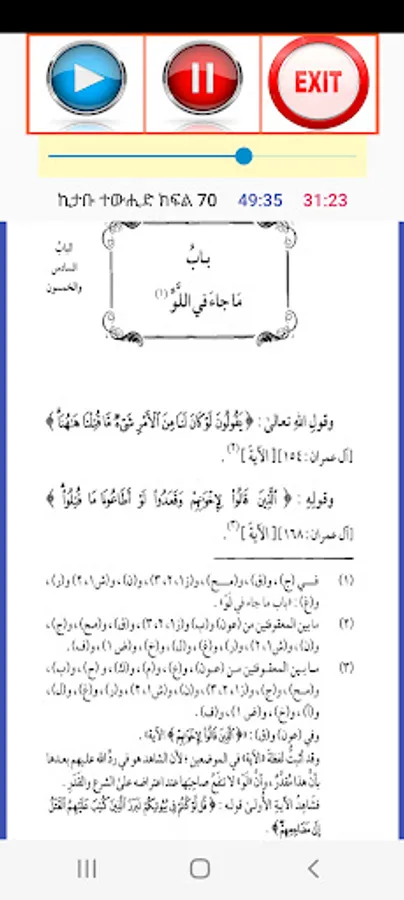 EXIT
ኪታቡ ተውሒድ ክፍል 70 49:35 31:23
البابُ
السادس
والخمسون
بابُ
مَا جاءَ في اللَّوِّ (١)
وقولِ اللهِ تعالىٰ : ﴿ يَقُولُونَ لَوْ كَانَ لَنَا مِنَ ٱلْأَمْرِ شَىْءٌ مَّا قُتِلْنَا هَٰهُنَا ﴾
[آل عمران : ١٥٤] [ الآيةَ ] (٢) .
وقولِهِ : ﴿ ٱلَّذِينَ قَالُوا۟ لِإِخْوَٰنِهِمْ وَقَعَدُوا۟ لَوْ أَطَاعُونَا مَا قُتِلُوا۟ ﴾
[آل عمران : ١٦٨] [ الآيةَ ] (٣) .
(١) فـي (ج) ، و(ق) ، و(مـح) ، و(ز١ ،٢ ،٣) ، و(ن) ، و(ش١ ،٢) و(ر) ،
و(غ) : «باب ما جاء في لَوْ» .
(٢) ما بين المعقوفتين من (عون) و(ب) و(ز١ ،٢ ،٣) ، و(ق) ، و(مح) ، و(ج) ،
و(ن) ، و(ش١ ،٢) ، و(ر) ، و(غ) ، و(ل) ، و(خ) ، و(ض١) ، و(ف) .
(٣) مـا بيـن المعقـوفتيـن مـن (عـون) ، و(ع) ، و(م) ، و(ك) ، و(ح) ، و(ب) ،
و(مـح) ، و(ج) ، و(ز١ ،٢ ،٣) ، و(ق) ، و(ن) ، و(ش١ ،٢) ، و(ر) ، و(غ) ، و(ل) ،
و(أ) ، و(خ) ، و(ض١) ، و(ف) .
وفي (عون) و(ق) : «﴿ ٱلَّذِينَ قَالُوا۟ لِإِخْوَٰنِهِمْ ﴾ الآية» .
وقد أثبتُّ لفظةَ «الآية» في الموضعين ؛ لأن الشاهد هو في ردِّ الله عليهم بعدها
بأنَّ هذا مقدَّرٌ ، وأنَّ «لَوْ» لا تنفعُ صاحبَها عند اعتراضه علىٰ الشرع والقَدَر .
فشاهِدُ الآيةِ الأُولىٰ قوله : ﴿ قُل لَّوْ كُنتُمْ فِى بُيُوتِكُمْ لَبَرَزَ ٱلَّذِينَ كُتِبَ عَلَيْهِمُ ٱلْقَتْلُ
إِلَىٰ مَضَاجِعِهِمْ ﴾ .